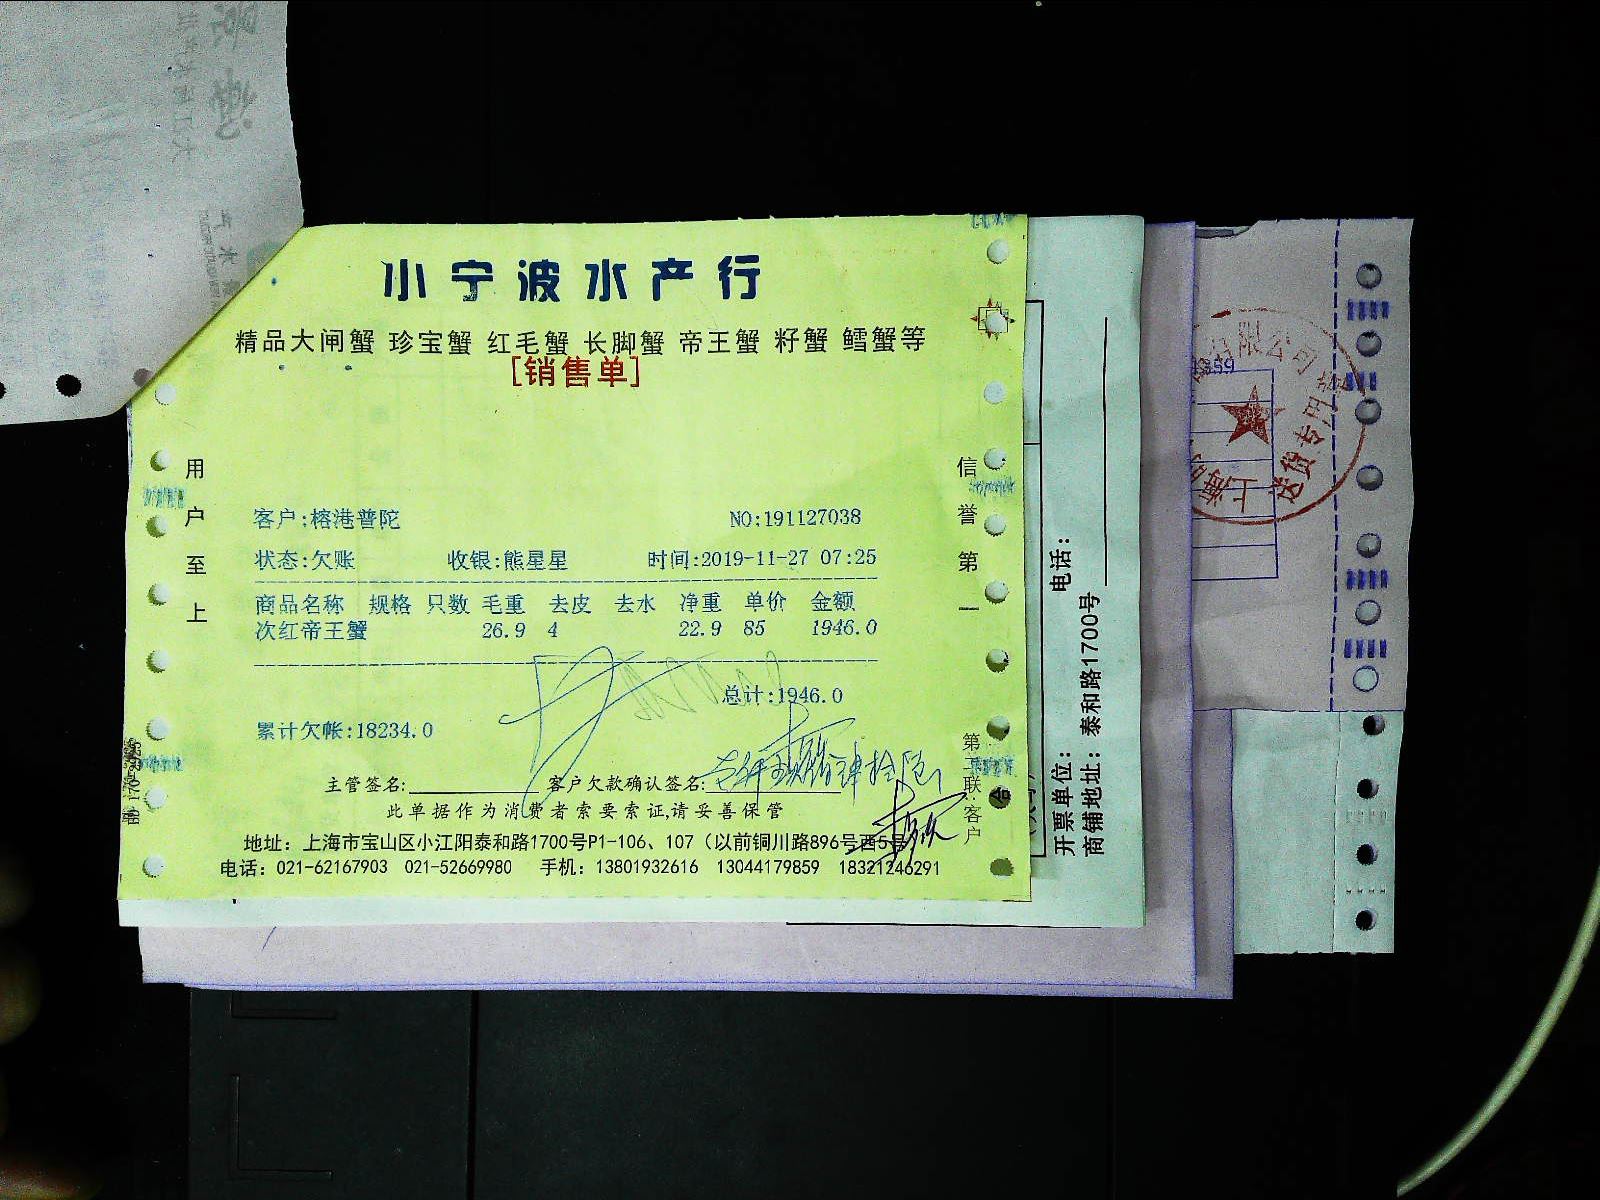 小宁波水产行
精品大闸蟹 珍宝蟹 红毛蟹 长脚蟹 帝王蟹 籽蟹 鳕蟹等
[销售单]
用户至上
信誉第一
客户:榕港普陀 NO:191127038
状态:欠账 收银:熊星星 时间:2019-11-27 07:25
商品名称 规格 只数 毛重 去皮 去水 净重 单价 金额
次红帝王蟹 26.9 4 22.9 85 1946.0
总计:1946.0
累计欠帐:18234.0
主管签名: 客户欠款确认签名:
此单据作为消费者索要索证,请妥善保管
地址：上海市宝山区小江阳泰和路1700号P1-106、107（以前铜川路896号西5号
电话：021-62167903 021-52669980 手机：13801932616 13044179859 18321246291
第二联:客户
开票单位： 电话：
商铺地址：泰和路1700号
有限公司
送货专用章
上海